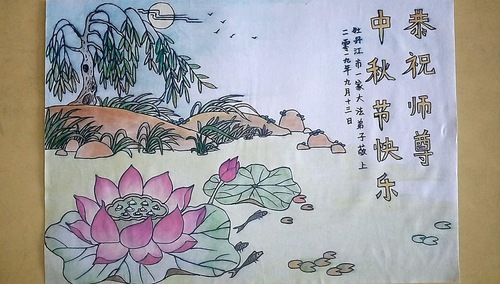 恭祝师尊
中秋节快乐
牡丹江市一家大法弟子敬上
二零一九年九月十三日